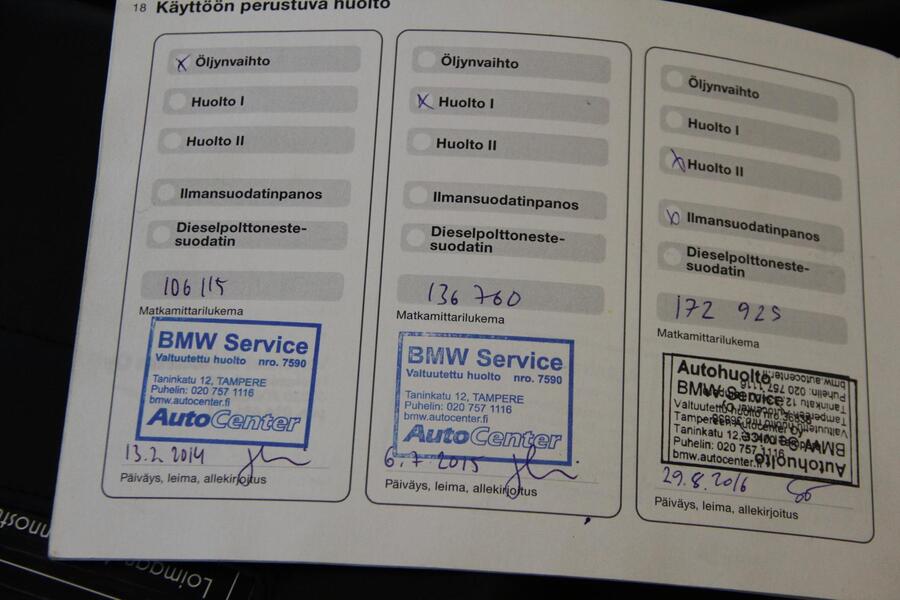 18 Käyttöön perustuva huolto
x Öljynvaihto
Huolto I
Huolto II
Ilmansuodatinpanos
Dieselpolttoneste-
suodatin
106 115
Matkamittarilukema
BMW Service
Valtuutettu huolto nro. 7590
Taninkatu 12, TAMPERE
Puhelin: 020 757 1116
bmw.autocenter.fi
AutoCenter
13.2.2014
Päiväys, leima, allekirjoitus
Öljynvaihto
x Huolto I
Huolto II
Ilmansuodatinpanos
Dieselpolttoneste-
suodatin
136 760
Matkamittarilukema
BMW Service
Valtuutettu huolto nro. 7590
Taninkatu 12, TAMPERE
Puhelin: 020 757 1116
bmw.autocenter.fi
AutoCenter
6.7 2015
Päiväys, leima, allekirjoitus
Öljynvaihto
Huolto I
x Huolto II
x Ilmansuodatinpanos
Dieselpolttoneste-
suodatin
172 925
Matkamittarilukema
Autohuolto
BMW Service
Valtuutettu huolto
Tampereen Autocenter Oy
Taninkatu 12,
Puhelin: 020 757 1116
bmw.autocenter.fi
29.8.2016
Päiväys, leima, allekirjoitus